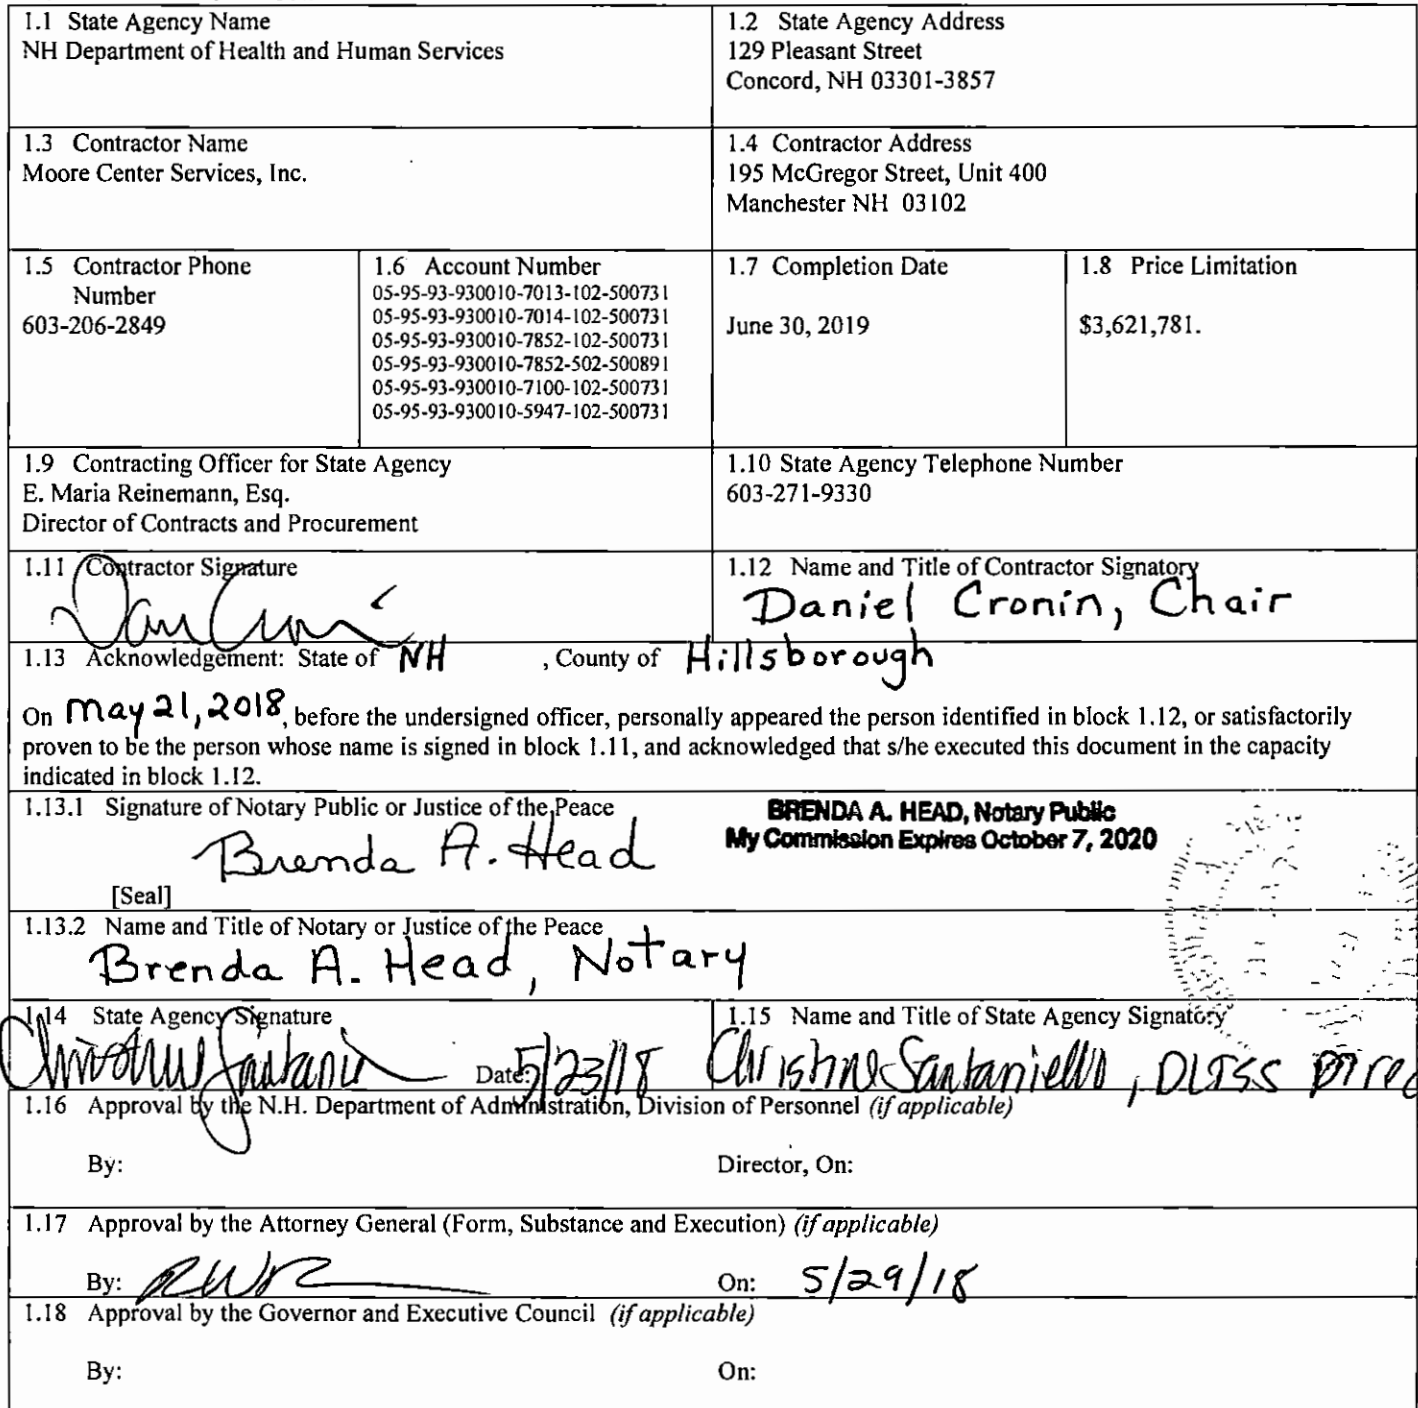 1.1 State Agency Name
NH Department of Health and Human Services
1.2 State Agency Address
129 Pleasant Street
Concord, NH 03301-3857
1.3 Contractor Name
Moore Center Services, Inc.
1.4 Contractor Address
195 McGregor Street, Unit 400
Manchester NH 03102
1.5 Contractor Phone
Number
603-206-2849
1.6 Account Number
05-95-93-930010-7013-102-500731
05-95-93-930010-7014-102-500731
05-95-93-930010-7852-102-500731
05-95-93-930010-7852-502-500891
05-95-93-930010-7100-102-500731
05-95-93-930010-5947-102-500731
1.7 Completion Date
June 30, 2019
1.8 Price Limitation
$3,621,781.
1.9 Contracting Officer for State Agency
E. Maria Reinemann, Esq.
Director of Contracts and Procurement
1.10 State Agency Telephone Number
603-271-9330
1.11 Contractor Signature
1.12 Name and Title of Contractor Signatory
Daniel Cronin, Chair
1.13 Acknowledgement: State of NH , County of Hillsborough
On May 21, 2018, before the undersigned officer, personally appeared the person identified in block 1.12, or satisfactorily
proven to be the person whose name is signed in block 1.11, and acknowledged that s/he executed this document in the capacity
indicated in block 1.12.
1.13.1 Signature of Notary Public or Justice of the Peace
Brenda A. Head
[Seal]
BRENDA A. HEAD, Notary Public
My Commission Expires October 7, 2020
1.13.2 Name and Title of Notary or Justice of the Peace
Brenda A. Head, Notary
1.14 State Agency Signature
Date: 5/23/18
1.15 Name and Title of State Agency Signatory
Christine Santaniello, DLTSS Direc
1.16 Approval by the N.H. Department of Administration, Division of Personnel (if applicable)
By: Director, On:
1.17 Approval by the Attorney General (Form, Substance and Execution) (if applicable)
By: On: 5/29/18
1.18 Approval by the Governor and Executive Council (if applicable)
By: On: